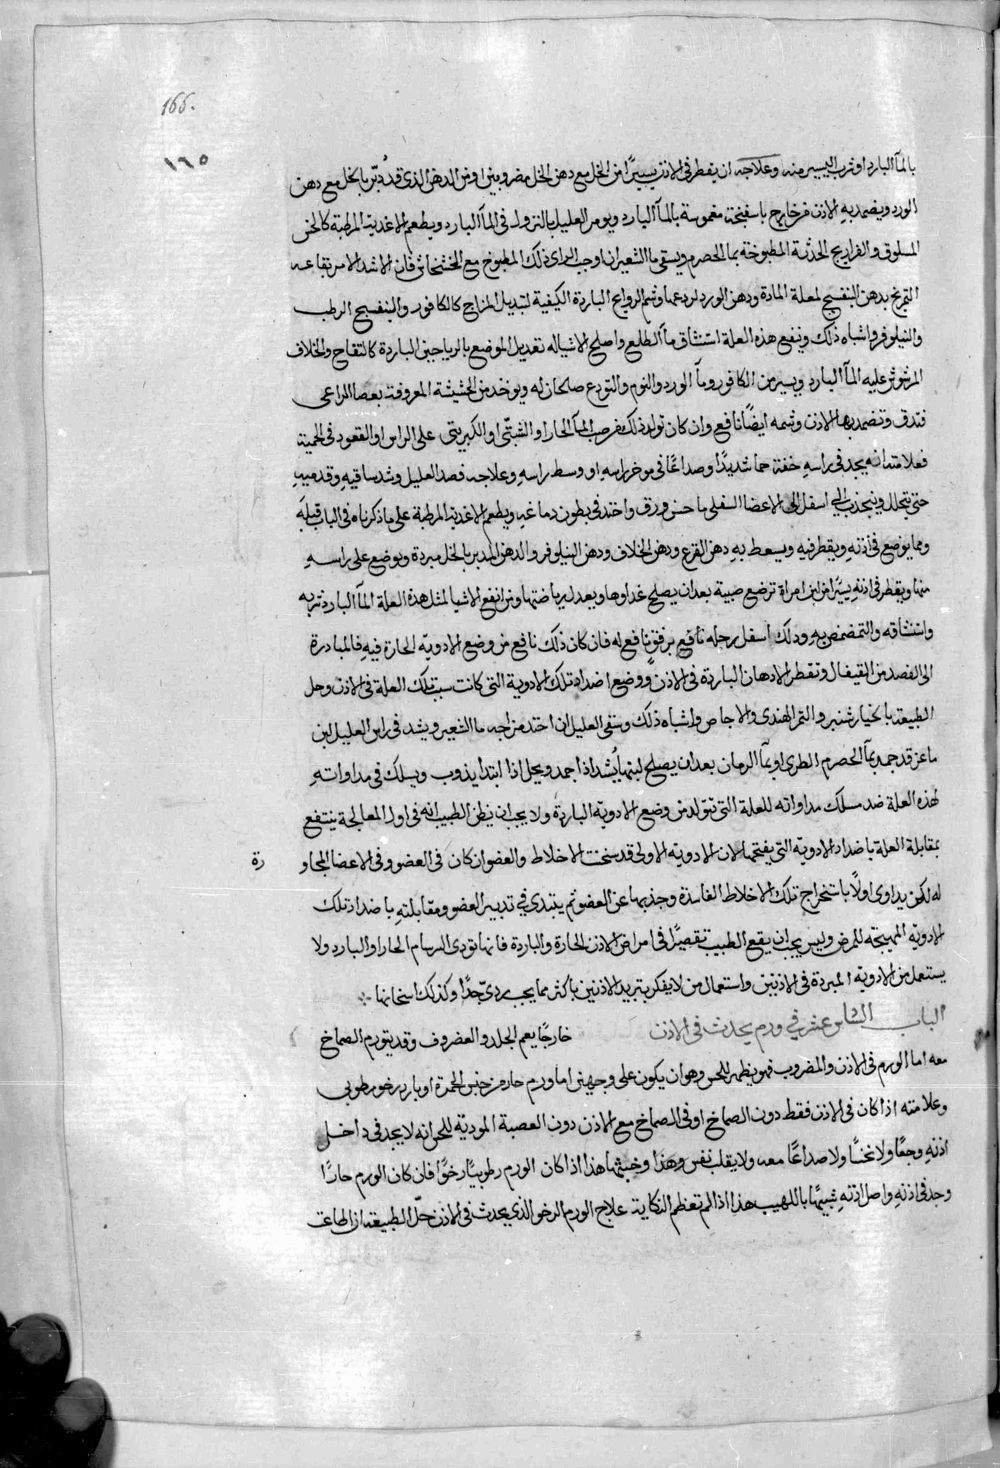 166.
١٦٥
بالمآ البارد او شرب اليسير منه وعلاجه ان يقطر في الاذن يسيرًا من الخل مع دهن الخل مضروبين او من الدهن الذي قد دُبّر بالخل مع دهن
الورد ويضمد به الاذن من خارج باسفنجة مغموسة بالمآ البارد ويومر العليل بالنزول في المآ البارد ويطعم الاغذية المرطبة كالخس
المسلوق والفراريج الحدثة المطبوخة بمآ الحصرم ويسقى مآ الشعير ان اوجب الراى ذلك المطبوخ مع الخشخاش فان الاشد الامر بقاعه
التمريخ بدهن البنفسج لمعلة المادة ودهن الورد لردعها وشم الروايح الباردة الكيفية لتبديل المزاج كالكافور والبنفسج الرطب
والنيلوفر واشباه ذلك وينفع هذه العلة استنشاق مآ الطلع واصلح الاشيا له تعديل الموضع بالرياحين الباردة كالتفاح والخلاف
المرشوش عليه المآ البارد ويسير من الكافور ومآ الورد والنوم والتودع صلحان له ويوخذ من الحشيشة المعروفة بعصا الراعى
فتدق وتضمد بها الاذن وشمه ايضًا نافع وان كان تولد ذلك من صب المآ الحار او الشبتّى او الكبريتى على الراس او القعود في الحمية
فعلامته انه يجد في راسهِ خفة حما شديدًا وصداعًا في موخر راسه او وسط راسهِ وعلاجه فصد العليل وشد ساقيهِ وقدميهِ
حتى يتحلل وينجذب الى اسفل الى الاعضا السفلى ما حسن ورق واحتد في بطون دماغهِ ويطعم الاغذية المرطبة على ما ذكرناه في الباب قبله
ومما يوضع في اذنهِ ويقطر فيه ويسعط بهِ دهن القرع ودهن الخلاف ودهن النيلوفر والدهن المدبر بالخل مبردة ويوضع على راسهِ
منها ويقطر في اذنهِ يسيرًا من لبن امراة ترضع صبية بعد ان يصلح غداوها ويعدل رياضتها ومن انفع الاشيا لمثل هذه العلة المآ البارد شربه
واستنشاقه والتمضمض بهِ ودلك اسفل رجله نافع برفق نافع له فان كان ذلك نافع من وضع الادوية الحارة فيهِ فالمبادرة
الى الفصد من القيفال وتقطر الادهان الباردة في الاذن ووضع اضداد تلك الادوية التى كانت سبب تلك العلة في الاذن وحل
الطبيعة بالخيارشنبر والتمر الهندى والاجاص واشباه ذلك وسقى العليل ان احتد مزاجه مآ الشعير ويشد في راس العليل لبن
ماعز قد جمد بمآ الحصرم الطرى او بمآ الرمان بعد ان يصلح لبنها يُشد اذا جمد ويحل اذا ابتدا يذوب ويسلك في مداواتهِ
لهذه العلة ضد مسلك مداواته للعلة التى تتولد من وضع الادوية الباردة ولا يجب ان يظن الطبيب انه في اول المعالجة ينتفع
بمقابلة العلة باضداد الادوية التى يفتحها لان الادوية الاولى قد سخنت الاخلاط والعضو ان كان في العضو وفي الاعضا المجاو
رة
له لكن يداوى اولًا باستخراج تلك الاخلاط الفاسدة وجذبها عن العضو ثم يبتدي في تدبير العضو ومقابلتهِ باضداد تلك
الادوية المهيجة للمرض وليس يجب ان يقع الطبيب تقصيرًا في امراض الاذن الحارة والباردة فانها تودى السرسام الحار او البارد ولا
يستعمل من الادوية المبردة في الاذنين واستعمال من لا يفكر بتبريد الاذنين باكثر مما يجب ردىّ جدًا وكذلك اسخانها
الباب عشر في ورم يحدث في الاذن خارجًا يعم الجلد والغضروف وقد يتورم الصماخ
معه اما الورم في الاذن والمضروب فهو يظهر للحس وهو ان يكون على وجهين اما ورم حار من جنس الحمرة او بارد رخو رطوبى
وعلامته اذا كان في الاذن فقط دون الصماخ او في الصماخ مع الاذن دون العصبة المودية للحس انه لا يجد في داخل
اذنهِ وجعًا ولا نخسًا ولا صداعًا معه ولا يقلب نفس وهذا وخبثها هذا اذا كان الورم رطوبيًا رخوًا فان كان الورم حارًا
وجد في اذنهِ واصل اذنهِ شبيهًا باللهيب هذا اذا لم تعظم النكاية علاج الورم الرخو الذي يحدث في الاذن حلّ الطبيعة ان اطاعت